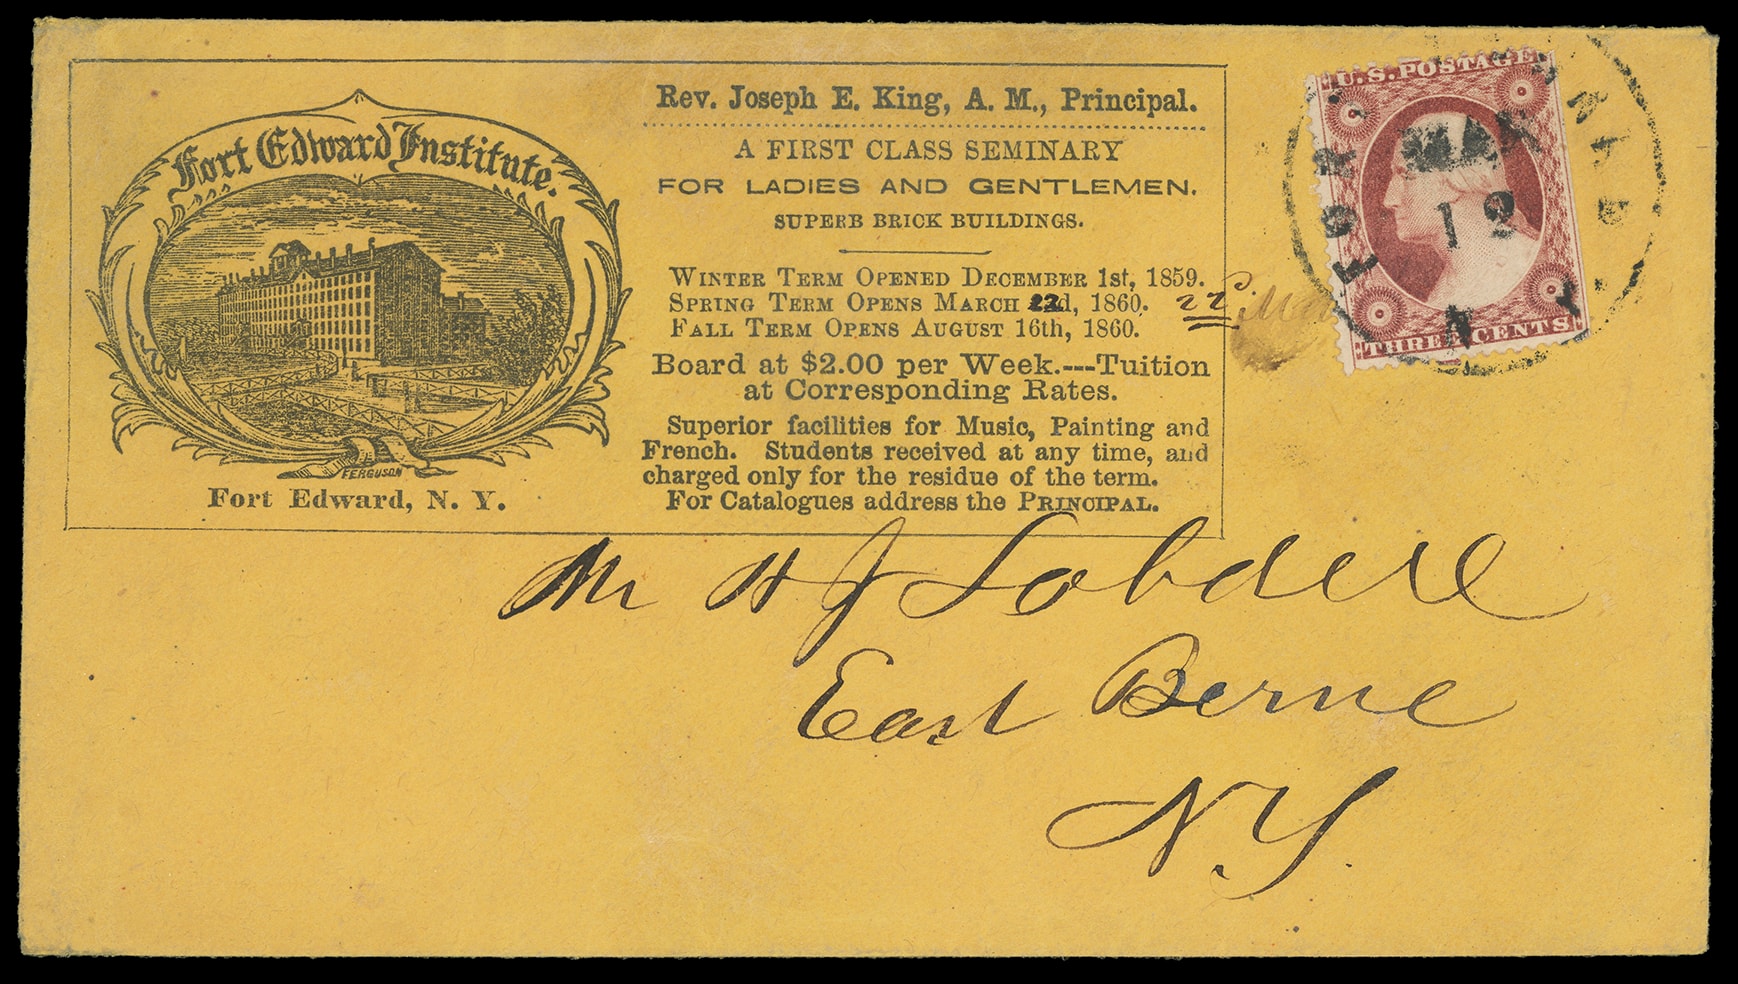 Fort Edward Institute.
FERGUSON
Fort Edward, N. Y.
Rev. Joseph E. King, A. M., Principal.
A FIRST CLASS SEMINARY
FOR LADIES AND GENTLEMEN.
SUPERB BRICK BUILDINGS.
WINTER TERM OPENED DECEMBER 1st, 1859.
SPRING TERM OPENS MARCH 22d, 1860. 22
FALL TERM OPENS AUGUST 16th, 1860.
Board at $2.00 per Week.---Tuition
at Corresponding Rates.
Superior facilities for Music, Painting and
French. Students received at any time, and
charged only for the residue of the term.
For Catalogues address the PRINCIPAL.
U.S. POSTAGE
THREE CENTS
FORT
MAR
19
N Y
Mr H J Lobdell
East Berne
N.Y.